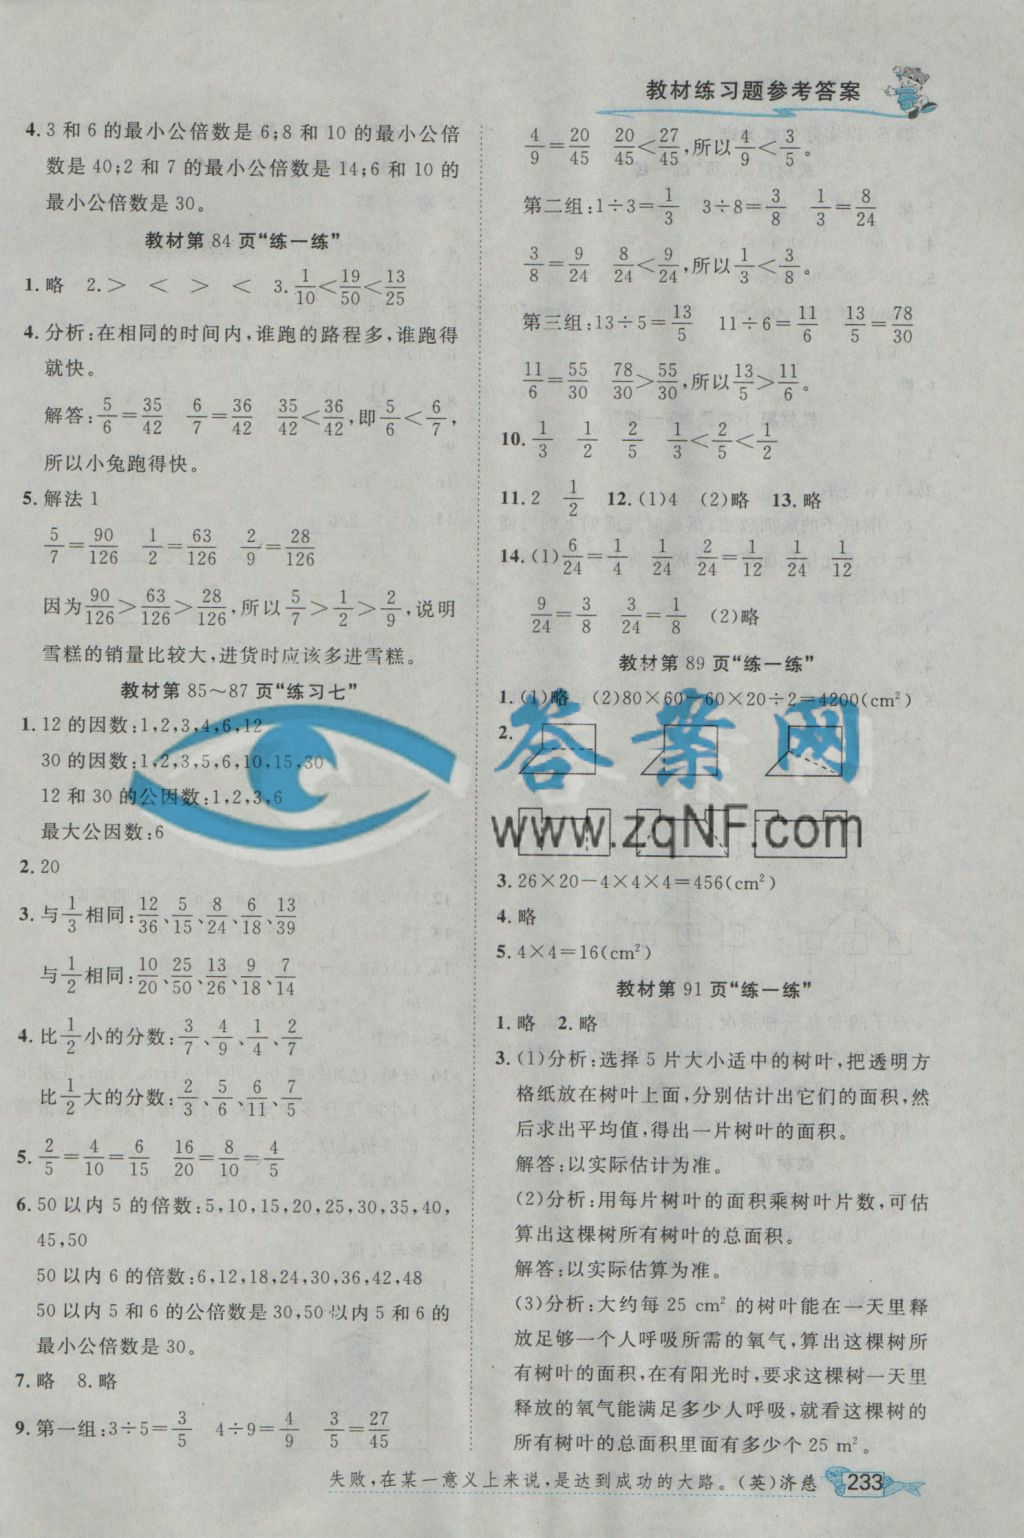 教材练习题参考答案
4. 3 和 6 的最小公倍数是 6;8 和 10 的最小公倍
数是 40;2 和 7 的最小公倍数是 14;6 和 10 的
最小公倍数是 30。
教材第 84 页“练一练”
1. 略 2. > < > < 3. 1/10<19/50<13/25
4. 分析:在相同的时间内,谁跑的路程多,谁跑得
就快。
解答:5/6=35/42 6/7=36/42 35/42<36/42,即 5/6<6/7,
所以小兔跑得快。
5. 解法 1
5/7=90/126 1/2=63/126 2/9=28/126
因为90/126>63/126>28/126,所以 5/7>1/2>2/9,说明
雪糕的销量比较大,进货时应该多进雪糕。
教材第 85~87 页“练习七”
1. 12 的因数:1,2,3,4,6,12
30 的因数:1,2,3,5,6,10,15,30
12 和 30 的公因数:1,2,3,6
最大公因数:6
2. 20
3. 与1/3相同:12/36、5/15、8/24、6/18、13/39
与1/2相同:10/20、25/50、13/26、9/18、7/14
4. 比1/2小的分数:3/7、4/9、1/4、2/7
比1/2大的分数:2/3、5/6、6/11、7/5
5. 2/5=4/10=6/15 16/20=8/10=4/5
6. 50 以内 5 的倍数:5,10,15,20,25,30,35,40,
45,50
50 以内 6 的倍数:6,12,18,24,30,36,42,48
50 以内 5 和 6 的公倍数是 30,50 以内 5 和 6 的
最小公倍数是 30。
7. 略 8. 略
9. 第一组:3÷5=3/5 4÷9=4/9 3/5=27/45
4/9=20/45 20/45<27/45,所以4/9<3/5。
第二组:1÷3=1/3 3÷8=3/8 1/3=8/24
3/8=9/24 8/24<9/24,所以1/3<3/8。
第三组:13÷5=13/5 11÷6=11/6 13/5=78/30
11/6=55/30 78/30>55/30,所以13/5>11/6。
10. 1/3 1/2 2/5 1/3<2/5<1/2
11. 2 1/2 12. (1)4 (2)略 13. 略
14. (1)6/24=1/4 1/24 2/24=1/12 1/24 1/12
9/24=3/8 3/24=1/8 (2)略
教材第 89 页“练一练”
1. (1)略 (2)80×60-60×20÷2=4200(cm²)
2.
答案网
www.zqNF.com
3. 26×20-4×4×4=456(cm²)
4. 略
5. 4×4=16(cm²)
教材第 91 页“练一练”
1. 略 2. 略
3. (1)分析:选择 5 片大小适中的树叶,把透明方
格纸放在树叶上面,分别估计出它们的面积,然
后求出平均值,得出一片树叶的面积。
解答:以实际估计为准。
(2)分析:用每片树叶的面积乘树叶片数,可估
算出这棵树所有树叶的总面积。
解答:以实际估算为准。
(3)分析:大约每 25 cm² 的树叶能在一天里释
放足够一个人呼吸所需的氧气,算出这棵树所
有树叶的面积,在有阳光时,要求这棵树一天里
释放的氧气能满足多少人呼吸,就看这棵树的
所有树叶的总面积里面有多少个 25 m²。
失败,在某一意义上来说,是达到成功的大路。(英)济慈
233